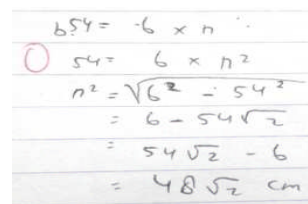 b54 = 6 x n
54 = 6 x n²
n² = √6² - 54²
= 6 - 54√2
= 54√2 - 6
= 48√2 cm